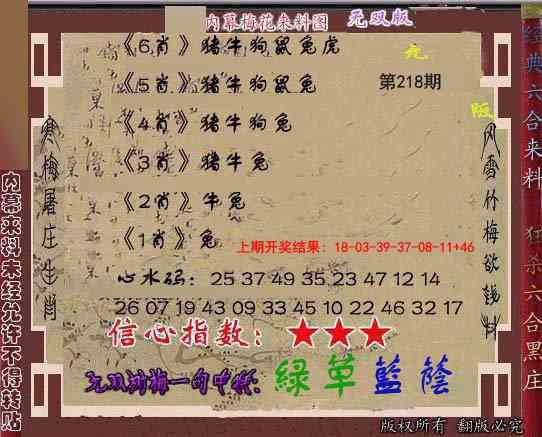 内幕梅花来料图 无双版
《6肖》猪牛狗鼠兔虎
《5肖》猪牛狗鼠兔
第218期
《4肖》猪牛狗兔
《3肖》猪牛兔
《2肖》牛兔
《1肖》兔
上期开奖结果：18-03-39-37-08-11+46
心水码：25 37 49 35 23 47 12 14
26 07 19 43 09 33 45 10 22 46 32 17
信心指数：★★★
无双浏梅一句中特：綠草藍蔭
版权所有 翻版必究
寒梅屠庄生肖
风雪竹梅欲钱料
内幕来料未经允许不得转贴
经典六合来料
狂杀六合黑庄